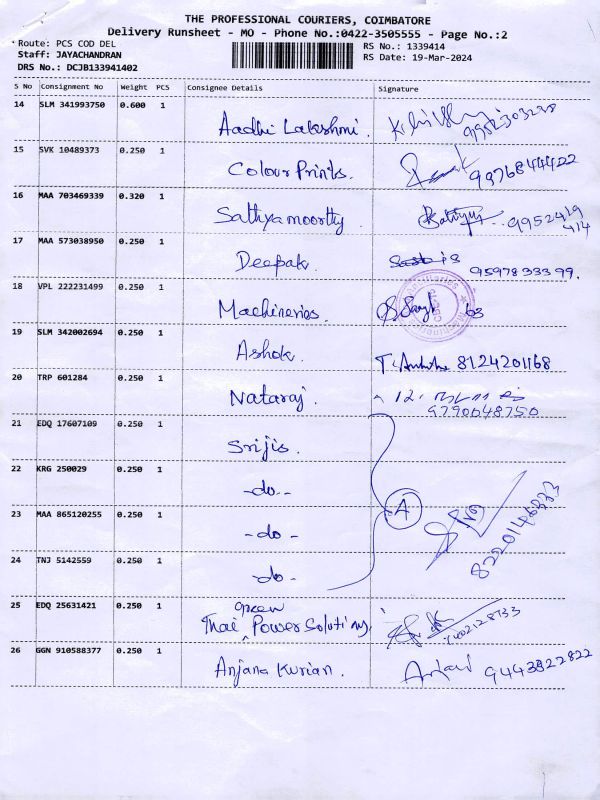 THE PROFESSIONAL COURIERS, COIMBATORE
Delivery Runsheet - MO - Phone No.:0422-3505555 - Page No.:2
Route: PCS COD DEL
Staff: JAYACHANDRAN
DRS No.: DCJB133941402
RS No.: 1339414
RS Date: 19-Mar-2024
S No Consignment No Weight PCS Consignee Details Signature
14 SLM 341993750 0.600 1 Aadhi Lakshmi.
15 SVK 10489373 0.250 1 Colour Prints. 9976844422
16 MAA 703469339 0.320 1 Sathya moorthy 9952419
414
17 MAA 573038950 0.250 1 Deepak. 9597833399.
18 VPL 222231499 0.250 1 Machineries. 63
19 SLM 342002694 0.250 1 Ashok. 8124201168
20 TRP 601284 0.250 1 Nataraj.
9790048750
21 EDQ 17607109 0.250 1 Srijis.
22 KRG 250029 0.250 1 -do-
23 MAA 865120255 0.250 1 -do- A
24 TNJ 5142559 0.250 1 -do-
25 EDQ 25631421 0.250 1 Thai green Power Solutions,
26 GGN 910588377 0.250 1 Anjana Kurian. 9443822822